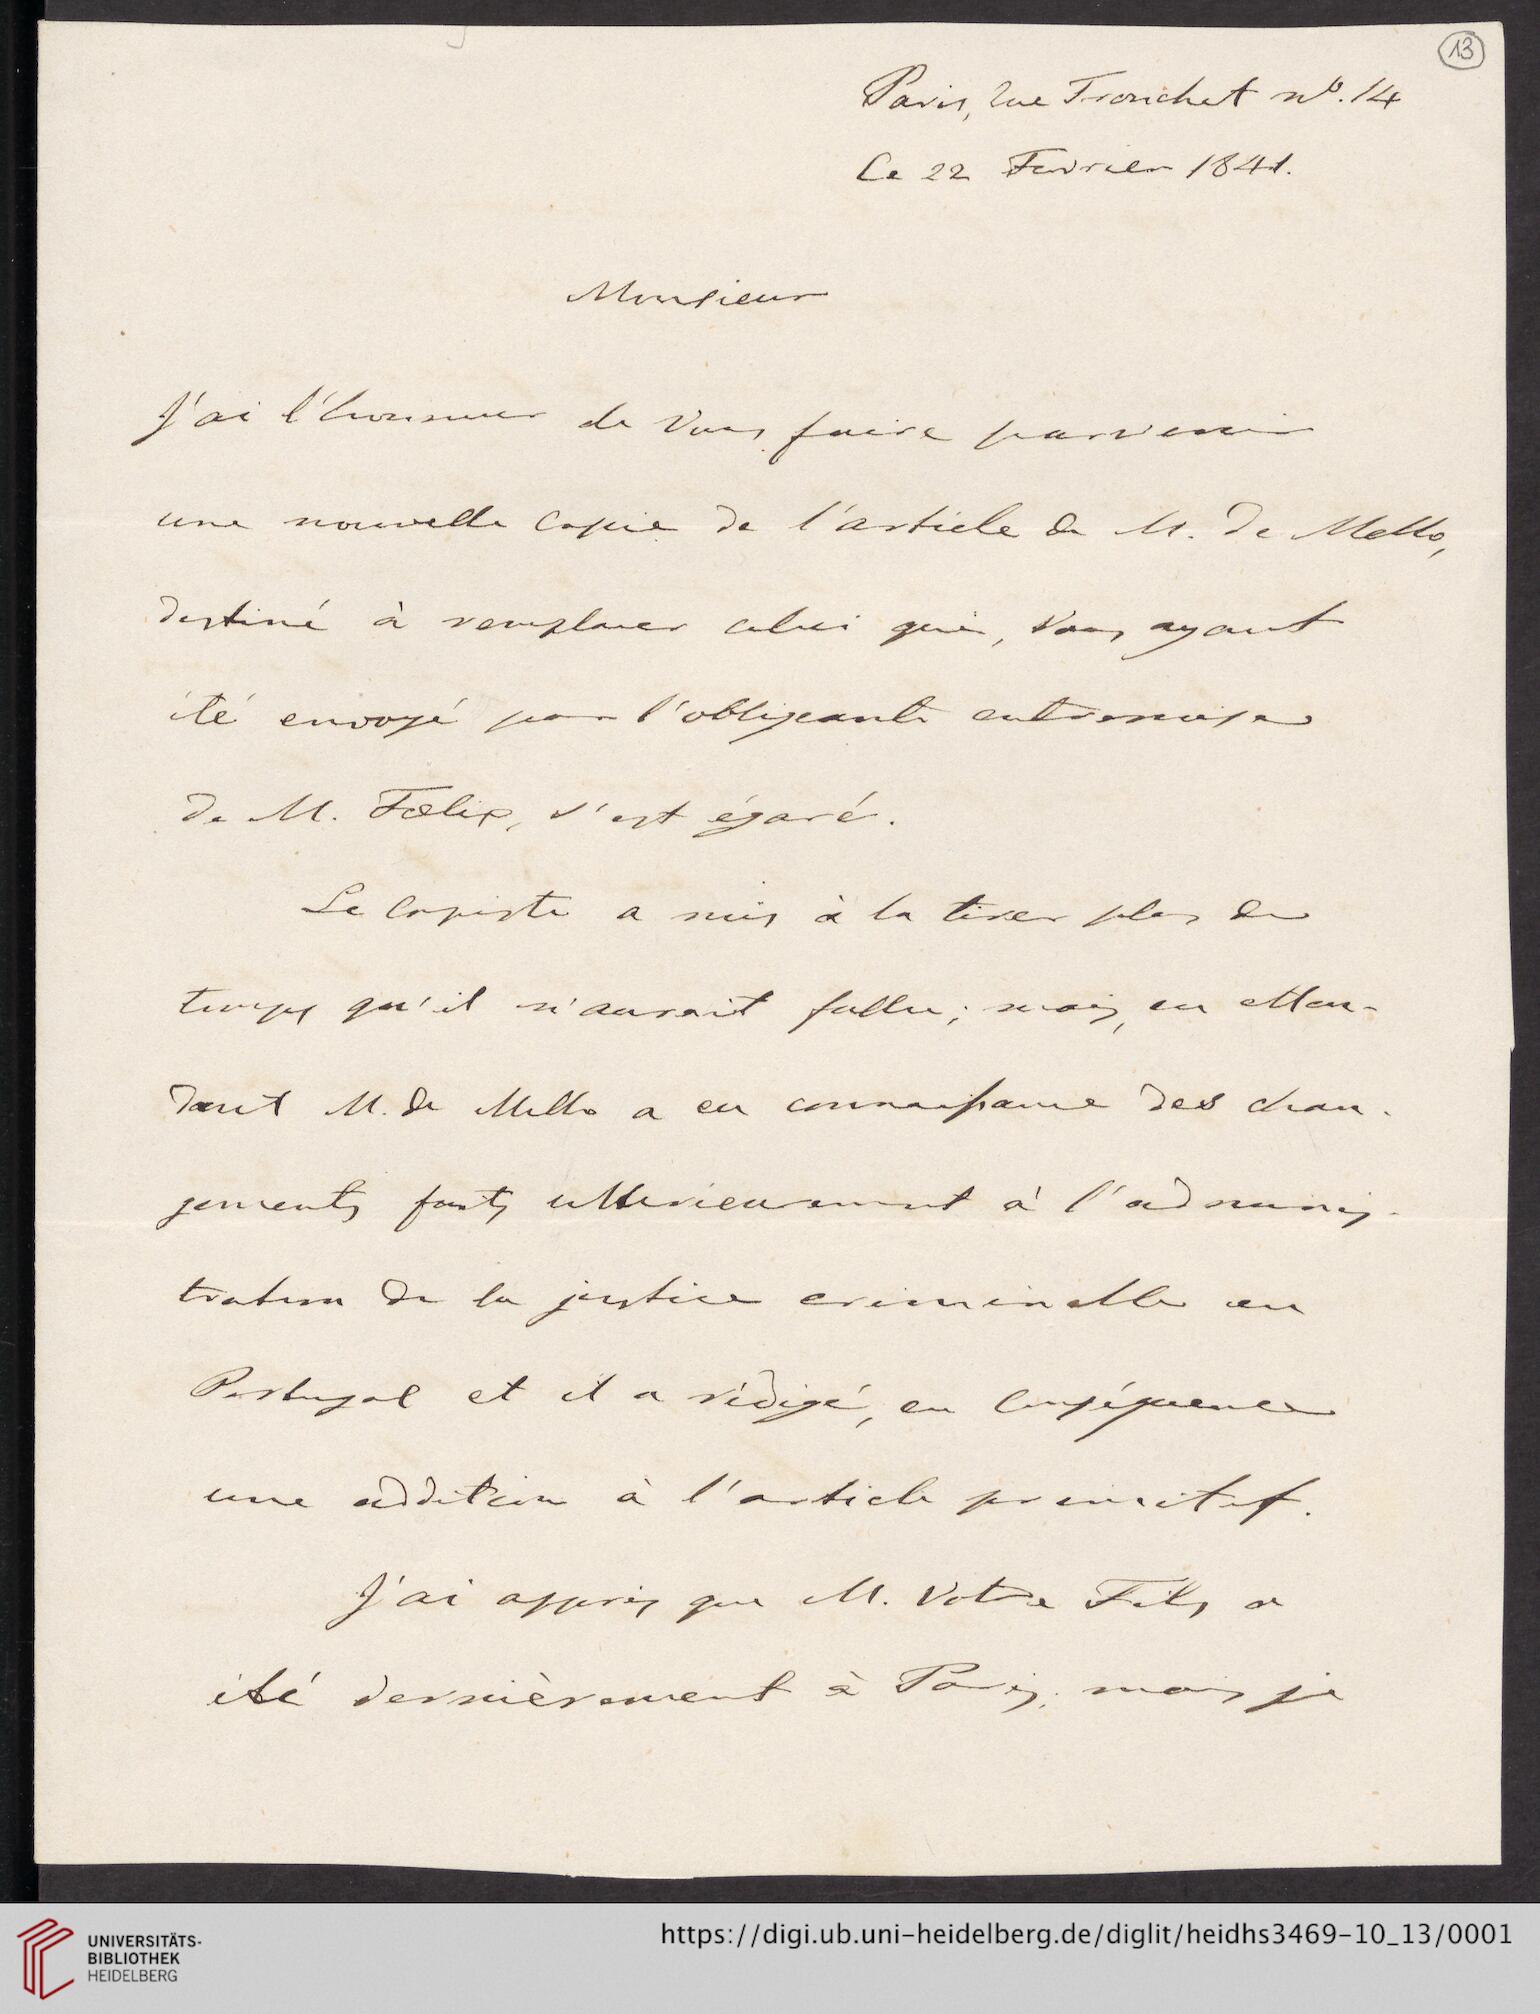 13
Paris, rue Tronchet no. 14
Le 22 Fevrier 1841.
Monsieur
J'ai l'honneur de vous faire parvenir
une nouvelle copie de l'article de M. de Mello,
destiné à remplacer celui qui, vous ayant
été envoyé par l'obligeante entremise
de M. Fœlix, s'est égaré.
Le Copiste a mis à la tirer plus de
temps qu'il n'aurait fallu; mais, en atten-
dant M. de Mello a eu connaissance des chan-
gements faits ulterieurement à l'adminis-
tration de la justice criminelle en
Portugal et il a rédigé, en conséquence
une addition à l'article primitif.
J'ai appris que M. Votre Fils a
été dernièrement à Paris; mais je
UNIVERSITÄTS-
BIBLIOTHEK
HEIDELBERG
https://digi.ub.uni-heidelberg.de/diglit/heidhs3469-10_13/0001